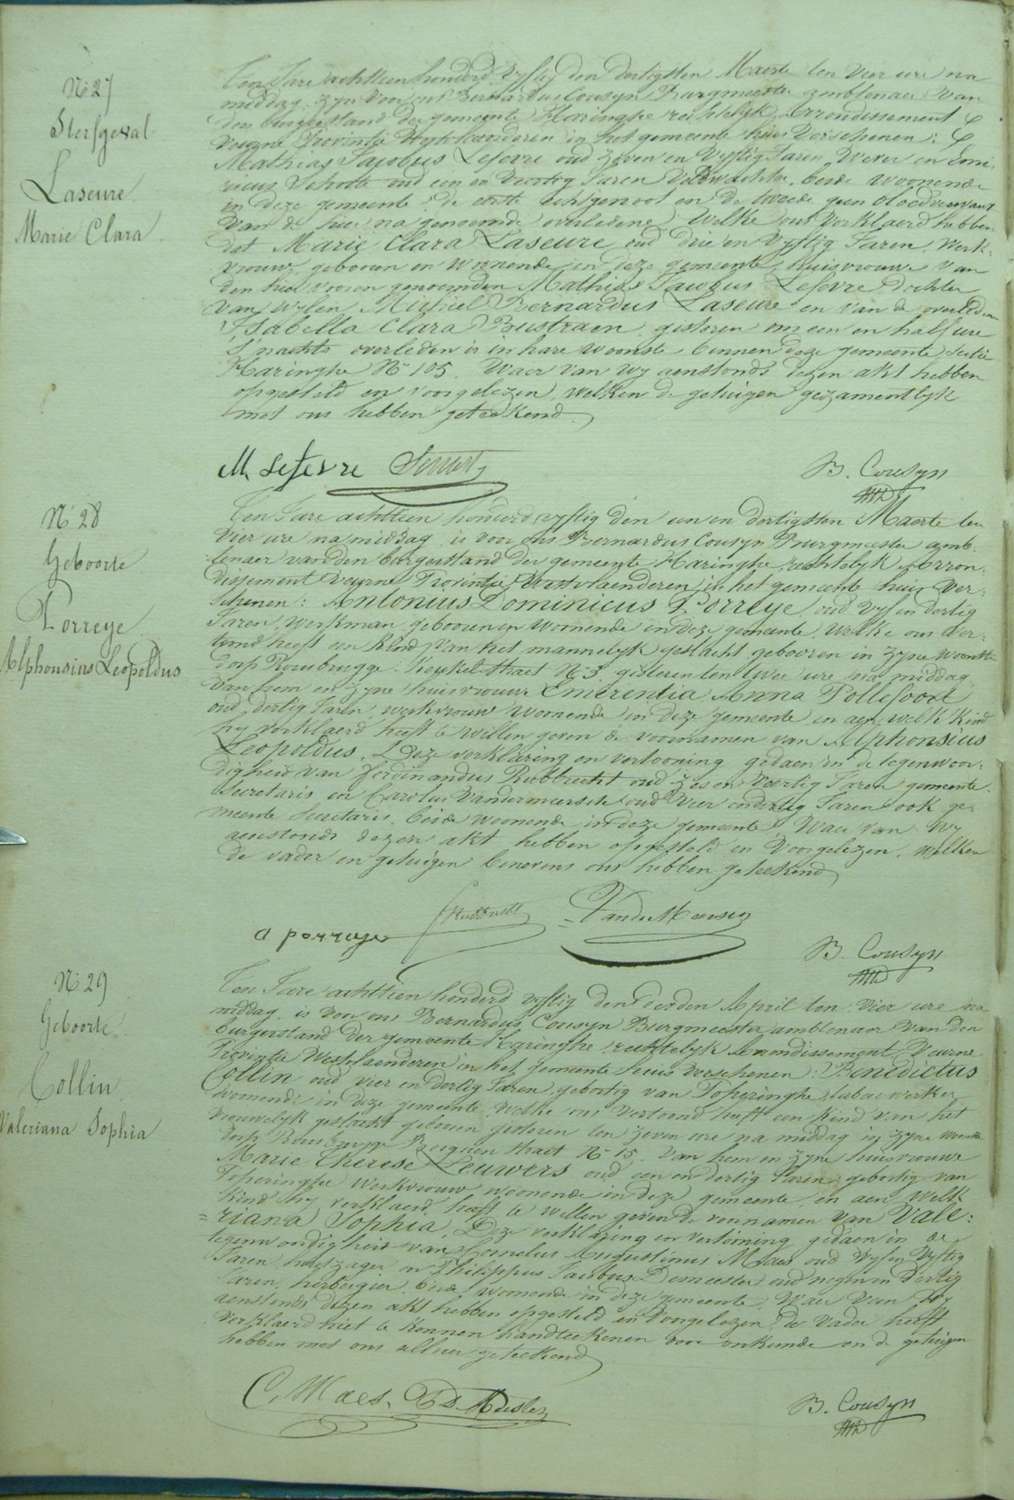 N 27
Sterfgeval
Laseure
Marie Clara
Ten Jare achttien honderd vyftig den dertigsten Maerte ten vier ure na
middag, zyn voor ons Bernardus Cousyn Burgmeester ambtenaer van
den burgerstand der gemeente Haringhe rechtelyk Arrondissement
Veurne Provintie Westvlaenderen in het gemeente huis verschenen:
Mathias Jacobus Lefevre oud zeven en vyftig Jaren Wever en
oud een en veertig Jaren Veldwachter, beide woonende
in deze gemeente, de eerste echtgenoot en de tweede geen bloedverwant
van de hier na genoemde overledene, Welke ons verklaerd hebben
dat Marie Clara Laseure, oud drie en vyftig Jaren, Werk-
vrouw, geboren en woonende in deze gemeente, huisvrouwe van
den hier voren genoemden Mathias Jacobus Lefevre Dochter
van wylen Michiel Bernardus Laseure en van de overleden
Isabella Clara Boustraen, gisteren om een en half ure
s'nachts overleden is in hare woonste binnen deze gemeente sectie
Haringhe N 105. Waer van wy aenstonds dezen akt hebben
opgesteld en voorgelezen, welken de getuigen gezamentlyk
met ons hebben geteekend
M Lefevre
B. Cousyn
N 28
Geboorte
Porreye
Alphonsius Leopoldus
Ten Jare achttien honderd vyftig den een en dertigsten Maerte ten
vier ure na middag, is voor ons Bernardus Cousyn Burgmeester amb-
tenaer van den burgerstand der gemeente Haringhe rechtelyk Arron-
dissement Veurne Provintie Westvlaenderen in het gemeente huis ver-
schenen: Antonius Dominicus Porreye, oud vyf en dertig
Jaren, Werkman, geboren en woonende in deze gemeente, welke ons ver-
toond heeft een Kind van het mannelyk geslacht geboren in zyne woonste
dorp Rousbrugge straet N 3, gisteren ten twee ure na middag,
van hem en zyne huisvrouwe Emerentia Anna Pollefoort
oud dertig Jaren, werkvrouw woonende in deze gemeente en aen welk Kind
hy verklaerd heeft te willen geven de voornamen van Alphonsius
Leopoldus. Deze verklaring en vertooning gedaen in de tegenwoor-
digheid van Ferdinandus Rubbrecht oud zes en veertig Jaren gemeente
Secretaris en Carolus Vandermeersch oud vier en dertig Jaren ook ge-
meente Secretaris, beide woonende in deze gemeente, Waer van wy
aenstonds dezen akt hebben opgesteld en voorgelezen, welken
de vader en getuigen benevens ons hebben geteekend
a porreye
B. Cousyn
N 29
Geboorte
Collin
Valeriana Sophia
Ten Jare achttien honderd vyftig den derden April ten vier ure na
middag, is voor ons Bernardus Cousyn Burgmeester ambtenaer van den
burgerstand der gemeente Haringhe rechtelyk Arrondissement Veurne
Provintie Westvlaenderen in het gemeente huis verschenen: Benedictus
Collin oud vier en dertig Jaren, geboortig van Poperinghe, werker,
woonende in deze gemeente, welke ons vertoond heeft een Kind van het
vrouwelyk geslacht geboren gisteren ten zeven ure na middag in zyne woonste
dorp Rousbrugge straet N 15, van hem en zyne huisvrouwe
Marie Therese Leuwers oud een en dertig Jaren, geboortig van
Poperinghe Werkvrouw woonende in deze gemeente, en aen Welk
Kind hy verklaerd heeft te willen geven de voornamen van Vale:
=riana Sophia. Deze verklaring en vertooning gedaen in de
tegenwoordigheid van Cornelius Augustinus Maes oud vyf en vyftig
Jaren en Philippus Jacobus Demeester oud negen en dertig
Jaren, herbergier, beide woonende in deze gemeente. Waer van wy
aenstonds dezen akt hebben opgesteld en voorgelezen, de Vader heeft
verklaerd niet te konnen handteekenen voor onkunde en de getuigen
hebben met ons alhier geteekend
C. Maes
B. Cousyn